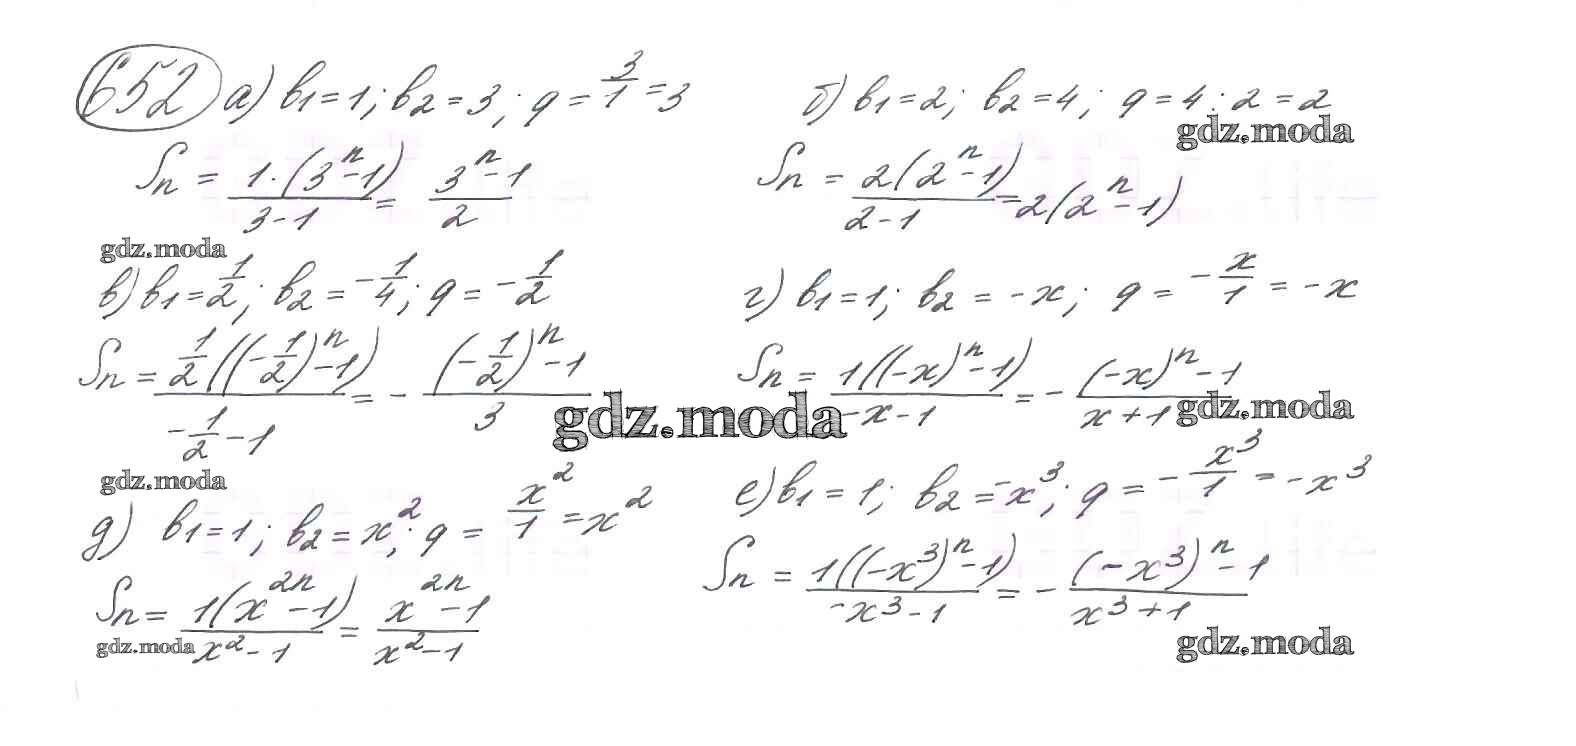 652 а) b₁=1; b₂=3; q = 3/1 = 3
Sₙ = 1·(3ⁿ-1)/(3-1) = (3ⁿ-1)/2
б) b₁=2; b₂=4; q=4:2=2
gdz.moda
Sₙ = 2(2ⁿ-1)/(2-1) = 2(2ⁿ-1)
gdz.moda
в) b₁=1/2; b₂=-1/4; q=-1/2
Sₙ = 1/2((-1/2)ⁿ-1)/(-1/2-1) = -((-1/2)ⁿ-1)/3
г) b₁=1; b₂=-x; q = -x/1 = -x
Sₙ = 1((-x)ⁿ-1)/(-x-1) = -((-x)ⁿ-1)/(x+1)
gdz.moda
gdz.moda
gdz.moda
д) b₁=1; b₂=x²; q = x²/1 = x²
Sₙ = 1(x²ⁿ-1)/(x²-1) = (x²ⁿ-1)/(x²-1)
gdz.moda
е) b₁=1; b₂=-x³; q = -x³/1 = -x³
Sₙ = 1((-x³)ⁿ-1)/(-x³-1) = -((-x³)ⁿ-1)/(x³+1)
gdz.moda